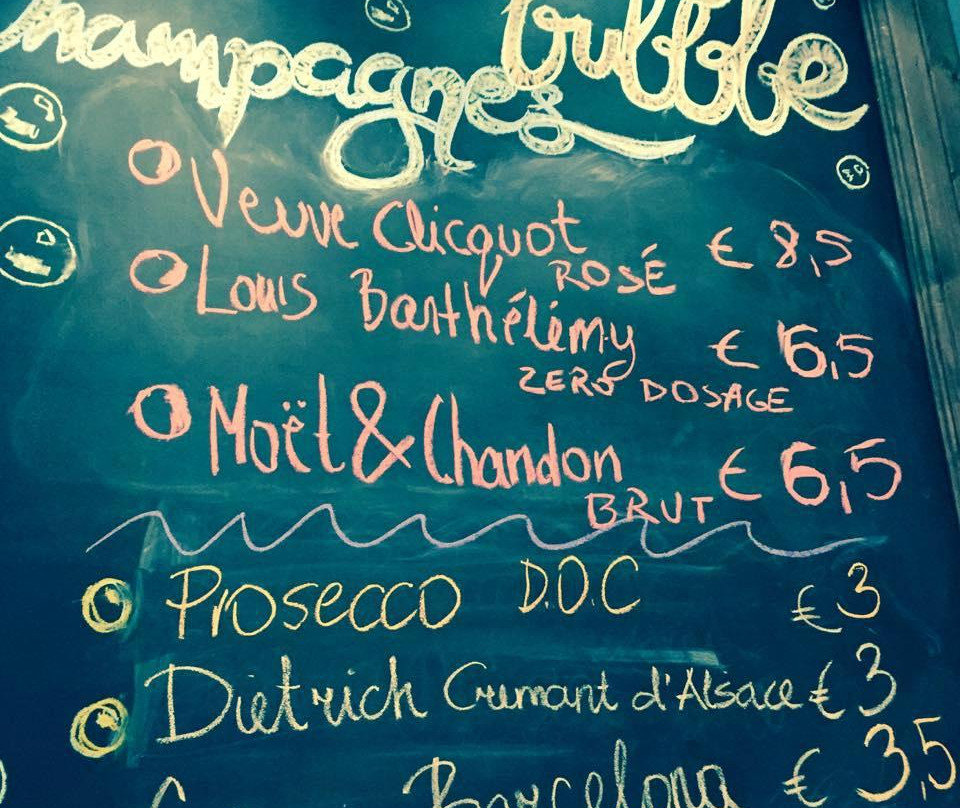 Champagnes bubble
Veuve Clicquot € 8,5
ROSÉ
Louis Barthélémy € 6,5
ZERO DOSAGE
Moët & Chandon € 6,5
BRUT
Prosecco D.O.C €3
Dietrich Cremant d'Alsace €3
Barcelona € 3,5